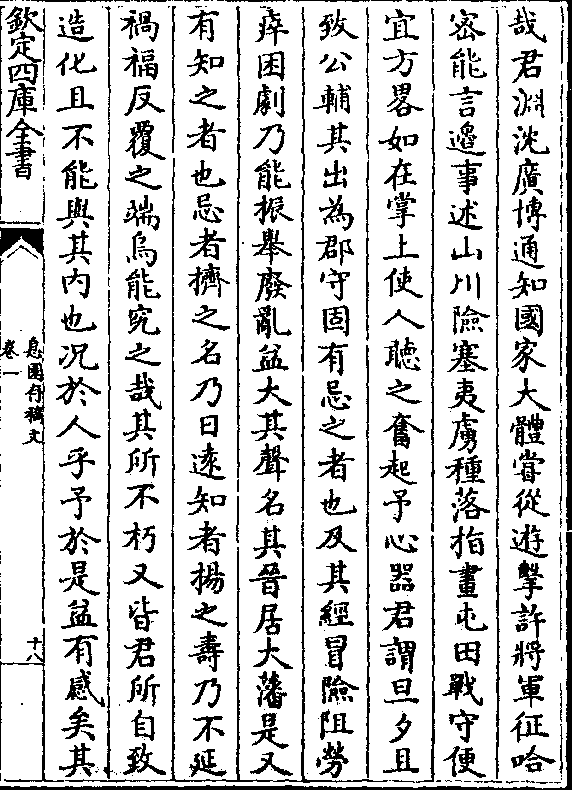 哉君淵沈廣博通知國家大體嘗從遊擊許將軍征哈
密能言邉事述山川險塞夷虜種落指畫屯田戰守便
宜方畧如在掌上使人聽之奮起予心器君謂旦夕且
致公輔其出為郡守固有忌之者也及其經冒險阻勞
瘁困劇乃能振舉廢亂益大其聲名其晉居大藩是又
有知之者也忌者擠之名乃日遠知者揚之壽乃不延
禍福反覆之端烏能究之哉其所不朽又皆君所自致
造化且不能與其内也况於人乎予於是益有感矣其
欽定四庫全書
息園存稿文
卷一
十八